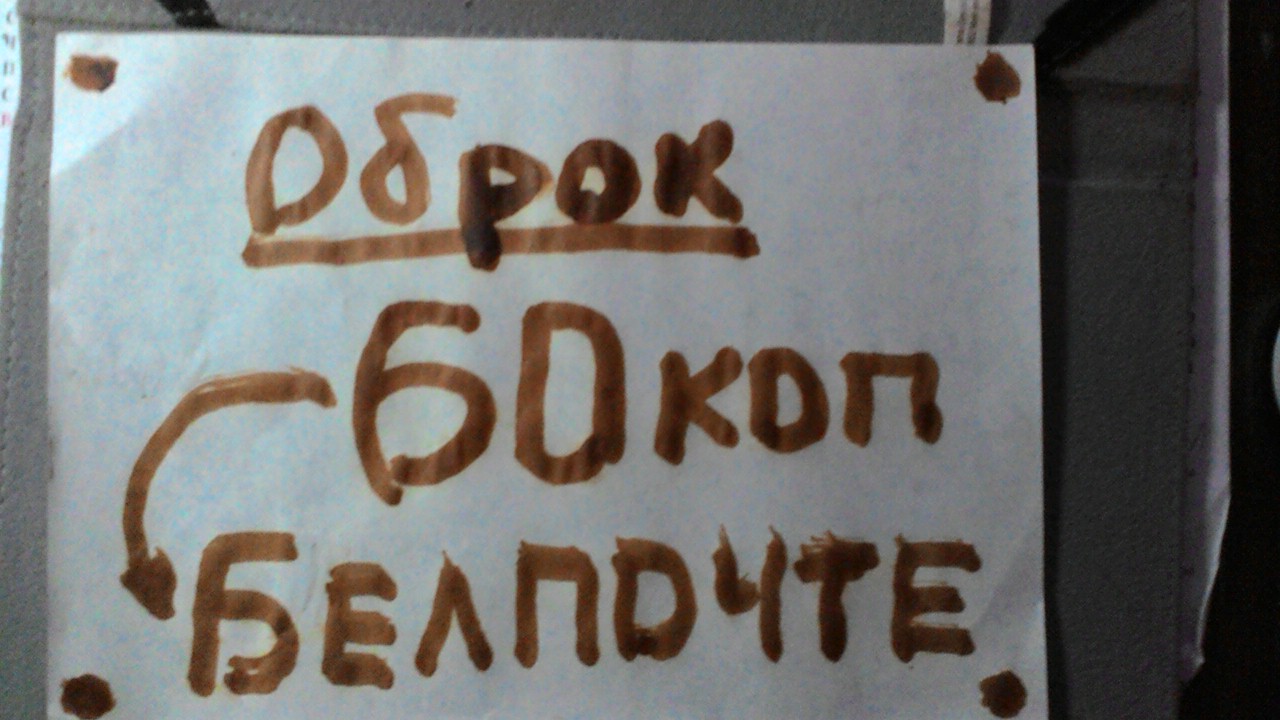 Оброк
60 коп
БЕЛПОЧТЕ